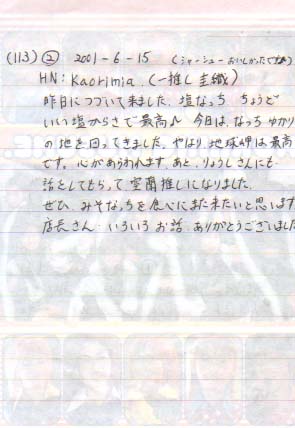 (113) ② 2001-6-15 (シャーシューおいしかったですね)
HN: Kaorimia. (一推し圭織)
昨日につづいて来ました。塩なっち ちょうど
いい塩からさで最高♪ 今日は、なっち ゆかり
の地を回ってきました。やはり、地球岬は最高
です。心があらわれます。あと、りょうしさんにも
話としてもらって 室蘭推しになりました。
ぜひ、みそなっちを食べにまた来たいと思います
店長さん いろいろ お話、ありがとうございました